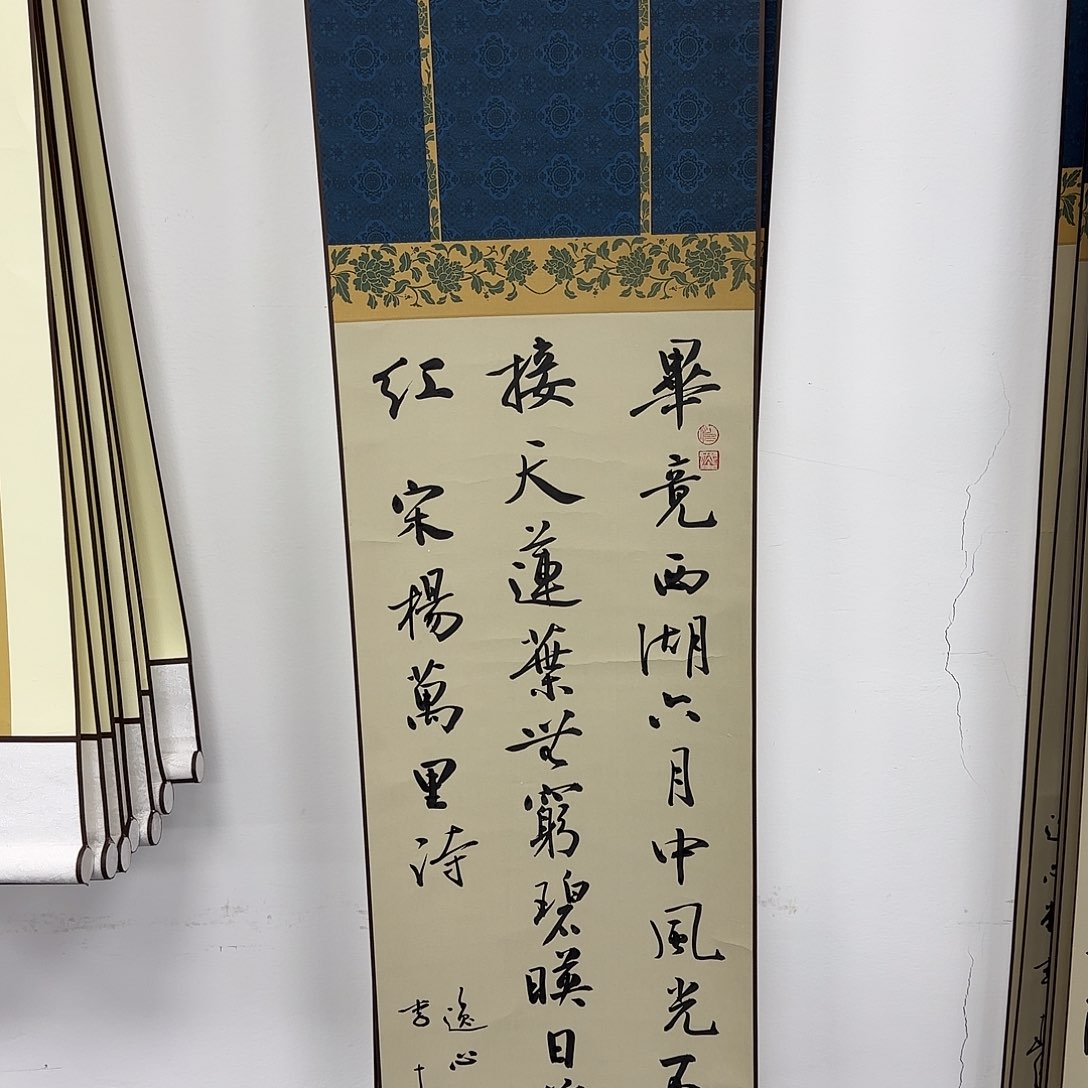 畢竟西湖六月中風光不
接天蓮葉無窮碧暎日
紅 宋楊萬里詩
逸心
書